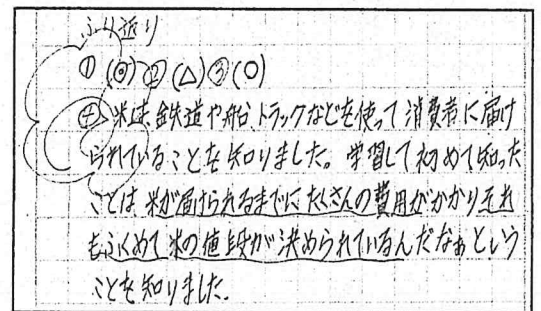 ふり返り
① (◎) ② (△) ③ (○)
④ 米は、鉄道や船、トラックなどを使って消費者に届け
られていることを知りました。学習して初めて知った
ことは、米が届けられるまでにたくさんの費用がかかりそれ
もふくめて米の値段が決められているんだなぁという
ことを知りました。